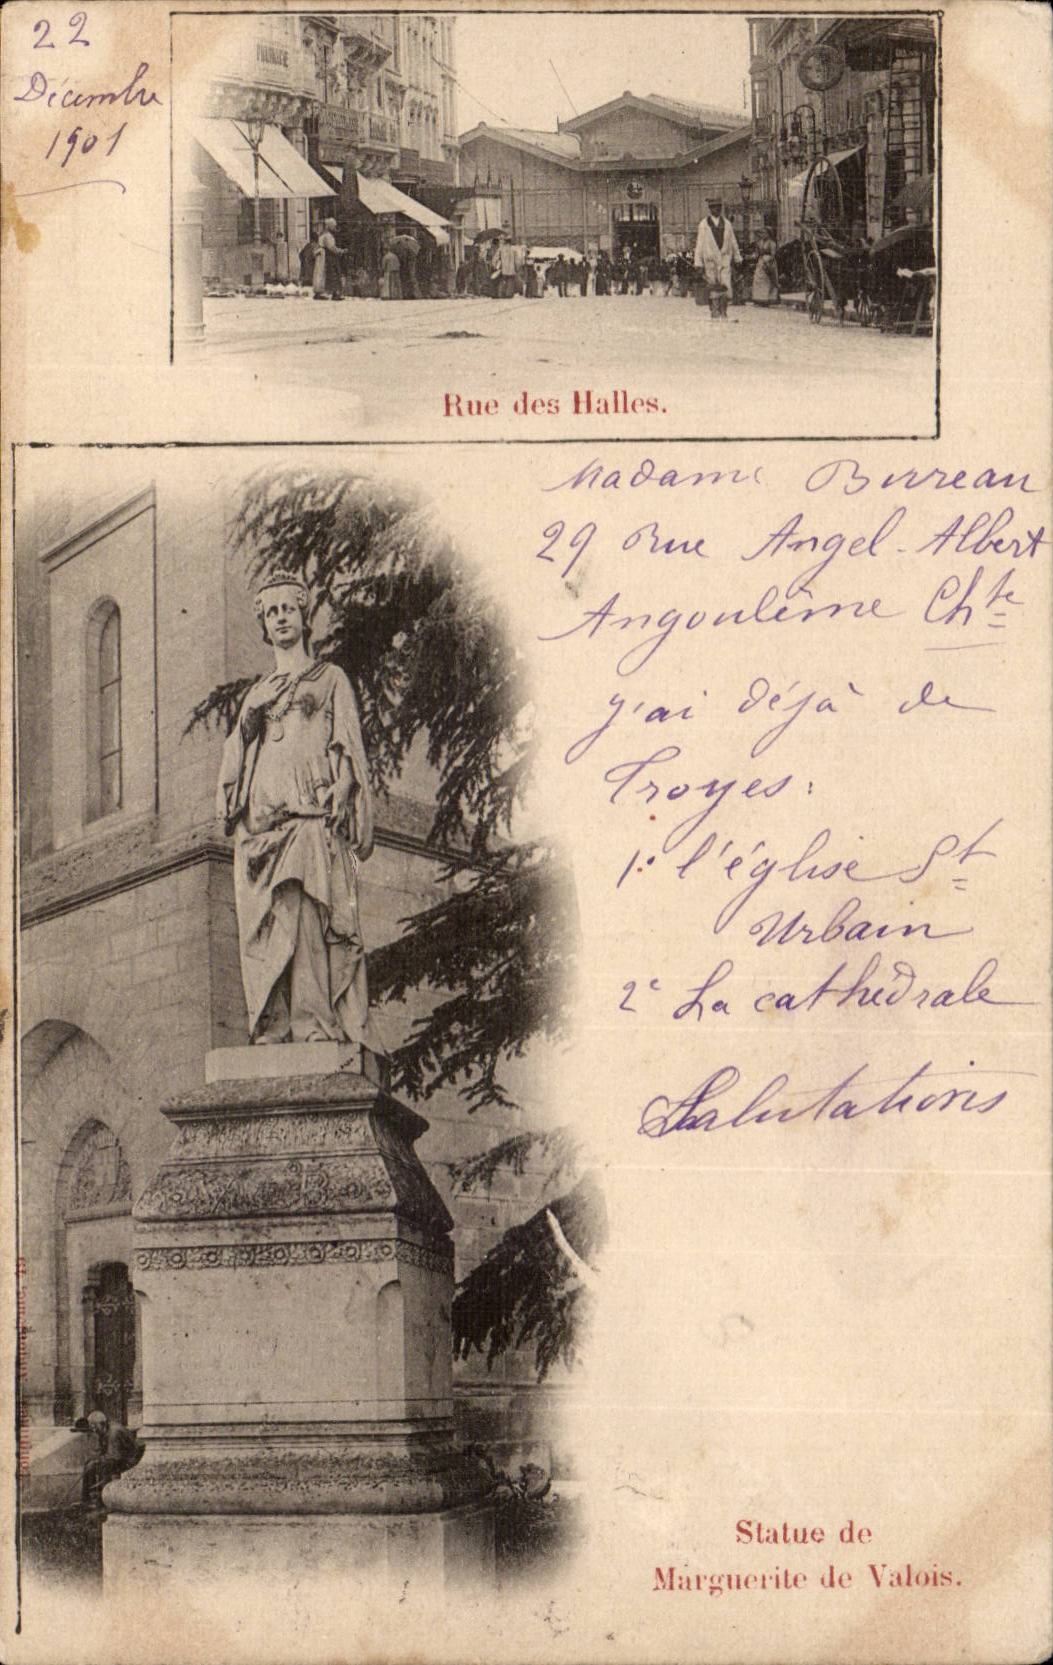 22
Décembre
1901
Rue des Halles.
Madame Burreau
29 Rue Angel-Albert
Angoulême Chte
j'ai déjà de
Troyes:
1° l'église St
Urbain
2° La cathédrale
Salutations
Statue de
Marguerite de Valois.